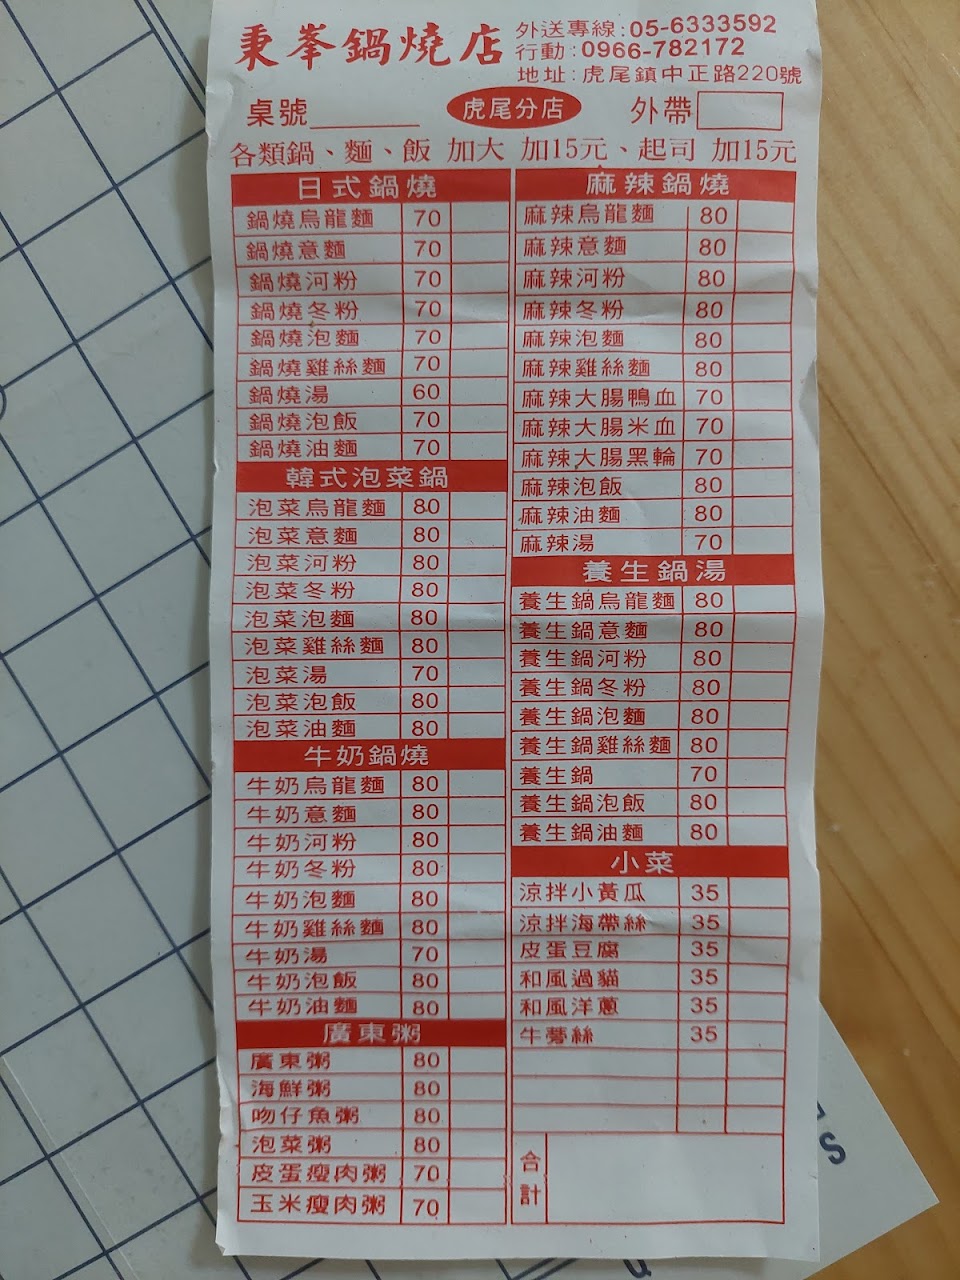 秉峯鍋燒店
外送專線:05-6333592
行動:0966-782172
地址:虎尾鎮中正路220號
桌號
虎尾分店
外帶
各類鍋、麵、飯 加大 加15元、起司 加15元
日式鍋燒
鍋燒烏龍麵 70
鍋燒意麵 70
鍋燒河粉 70
鍋燒冬粉 70
鍋燒泡麵 70
鍋燒雞絲麵 70
鍋燒湯 60
鍋燒泡飯 70
鍋燒油麵 70
韓式泡菜鍋
泡菜烏龍麵 80
泡菜意麵 80
泡菜河粉 80
泡菜冬粉 80
泡菜泡麵 80
泡菜雞絲麵 80
泡菜湯 70
泡菜泡飯 80
泡菜油麵 80
牛奶鍋燒
牛奶烏龍麵 80
牛奶意麵 80
牛奶河粉 80
牛奶冬粉 80
牛奶泡麵 80
牛奶雞絲麵 80
牛奶湯 70
牛奶泡飯 80
牛奶油麵 80
廣東粥
廣東粥 80
海鮮粥 80
吻仔魚粥 80
泡菜粥 80
皮蛋瘦肉粥 70
玉米瘦肉粥 70
麻辣鍋燒
麻辣烏龍麵 80
麻辣意麵 80
麻辣河粉 80
麻辣冬粉 80
麻辣泡麵 80
麻辣雞絲麵 80
麻辣大腸鴨血 70
麻辣大腸米血 70
麻辣大腸黑輪 70
麻辣泡飯 80
麻辣油麵 80
麻辣湯 70
養生鍋湯
養生鍋烏龍麵 80
養生鍋意麵 80
養生鍋河粉 80
養生鍋冬粉 80
養生鍋泡麵 80
養生鍋雞絲麵 80
養生鍋 70
養生鍋泡飯 80
養生鍋油麵 80
小菜
涼拌小黃瓜 35
涼拌海帶絲 35
皮蛋豆腐 35
和風過貓 35
和風洋蔥 35
牛蒡絲 35
合計